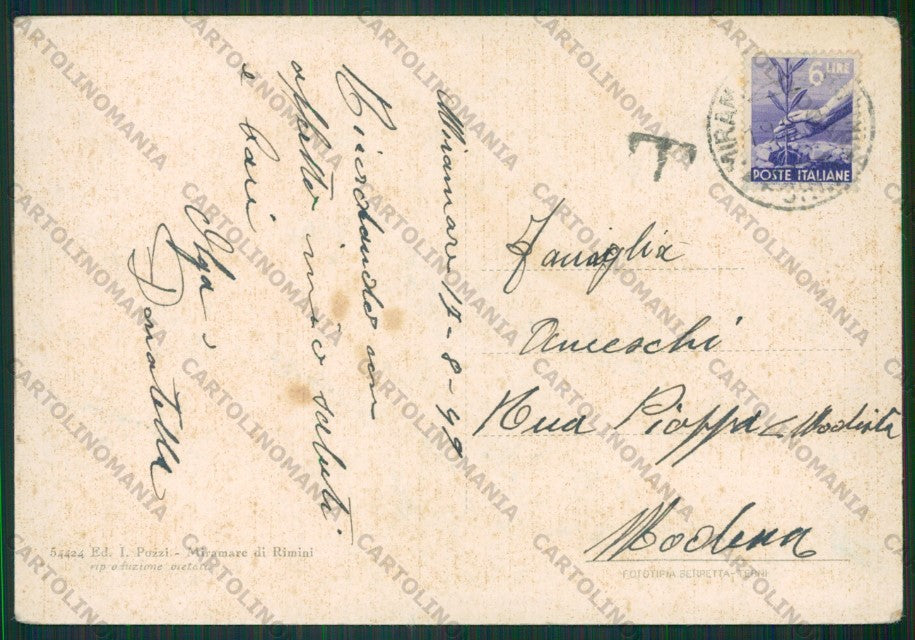 6 LIRE
POSTE ITALIANE
T
Miramare 17-8-49
Ricordando con
affetto invio saluti
e baci
Olga e
Donatella
Famiglia
Ameschi
Rua Pioppa Modista
Modena
54424 Ed. I. Pozzi - Miramare di Rimini
riproduzione vietata
FOTOTIPIA BERRETTA-TERNI
CARTOLINOMANIA